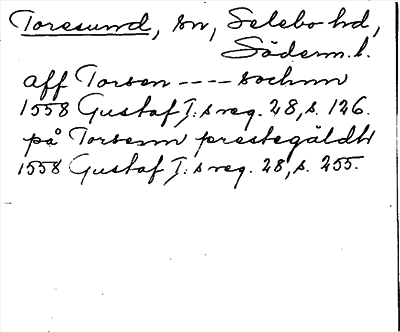 Toresund, sn, Selebo hd,
Söderm. l.
aff Torsen ---- sochnn
1558 Gustaf I:s reg. 28, s. 126.
på Torsesnn prestegäldtt
1558 Gustaf I:s reg. 28, s. 255.